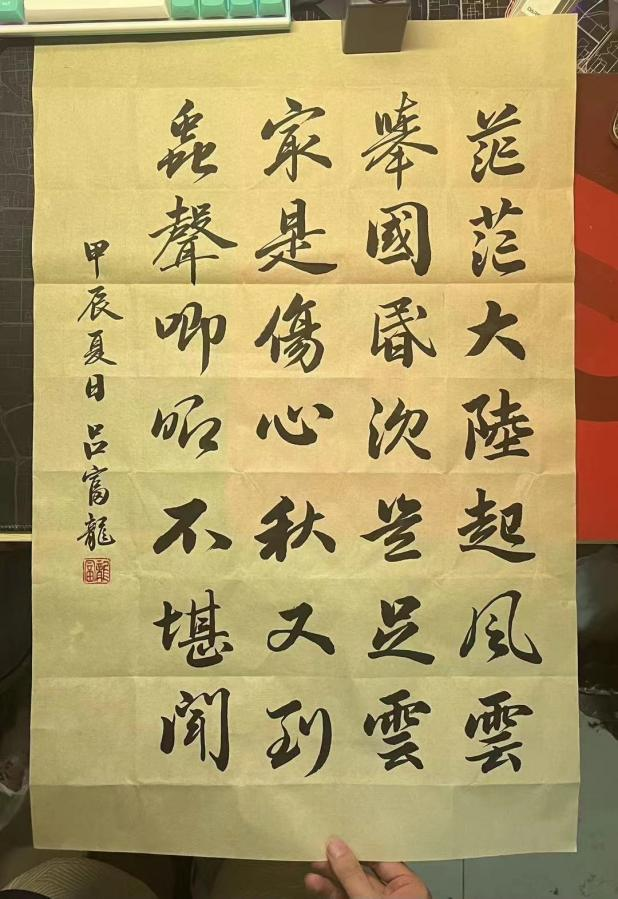 茫茫大陸起風雲
舉國昬沉豈足雲
最是傷心秋又到
蟲聲唧唧不堪聞
甲辰夏日 呂富龍